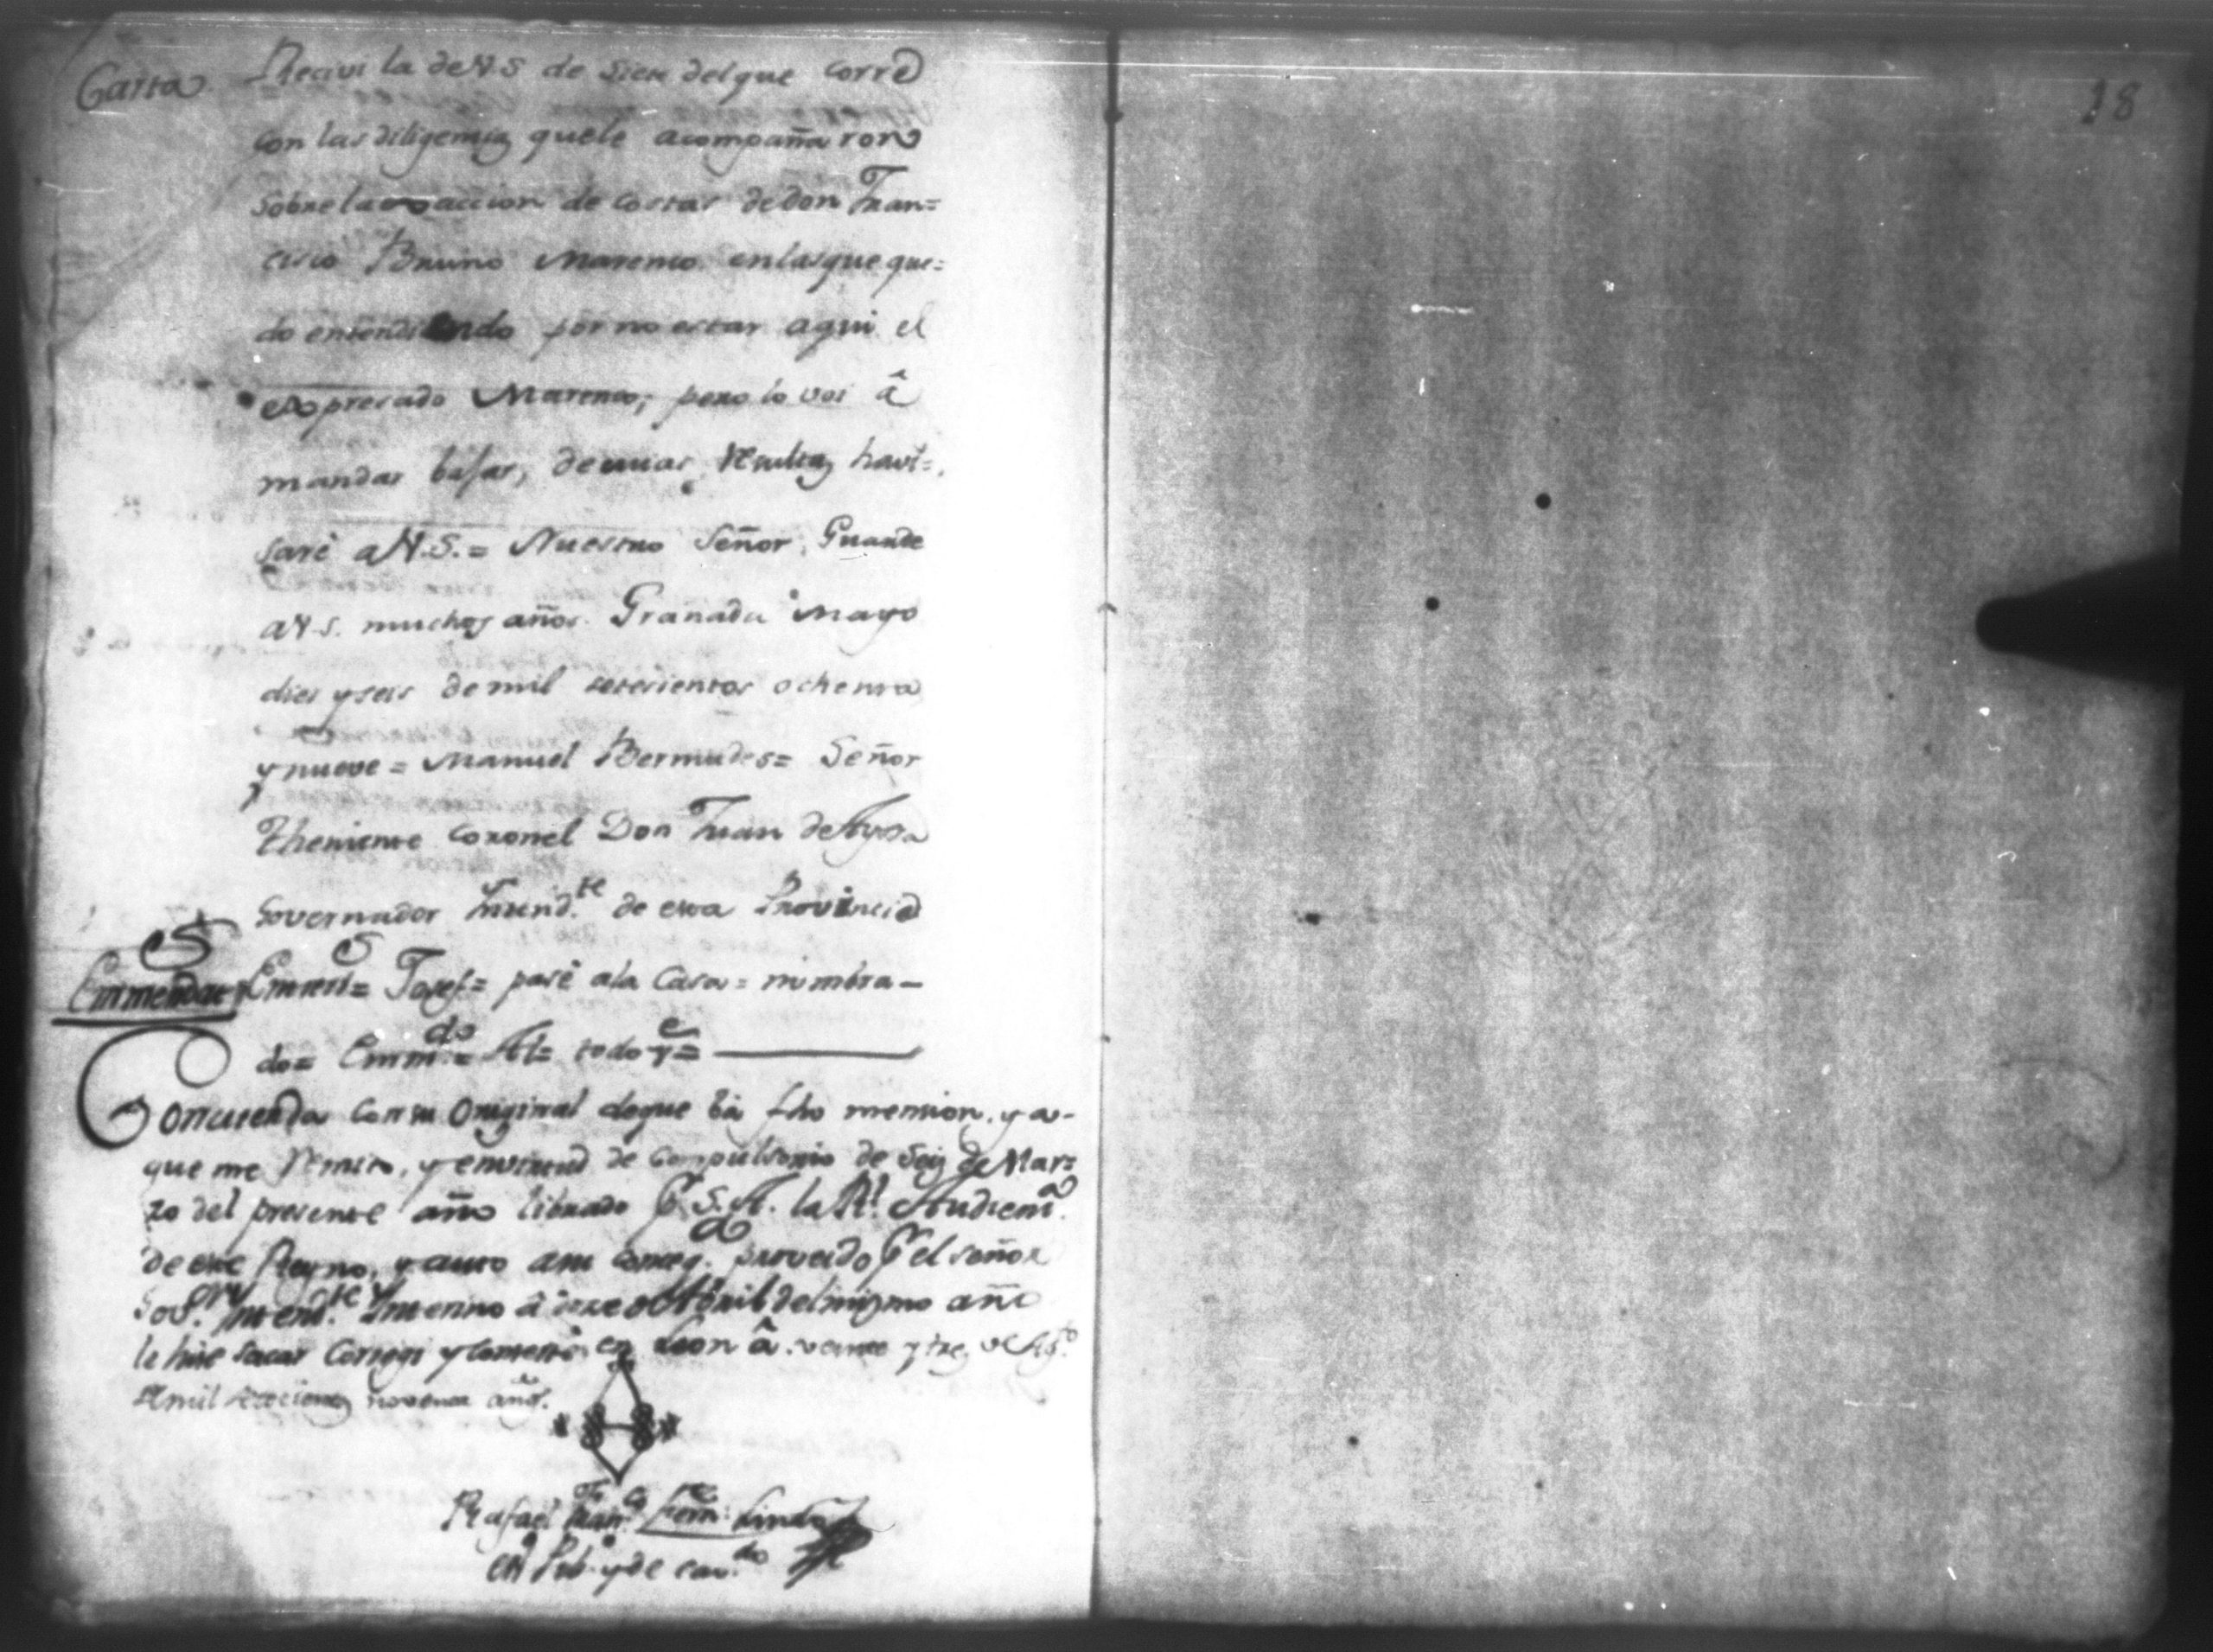 Carta Recivi la de V.S de siete del que corre
con las diligencias que le acompañaron
sobre la exaccion de costas de don Fran=
cisco Bruno Marenco en las que que=
do entendiendo por no estar aqui el
expresado Marenco; pero lo voi â
mandar bajar, de cuias resultas havi=
saré a V.S.= Nuestro Señor Guarde
a V.S. muchos años. Granada Mayo
dies y seis de mil setesientos ochenta
y nueve = Manuel Bermudes= Señor
Theniente Coronel Don Juan de Ayssa
Governador Intend.te de esta Provincia
Josef= pasé a la Casa= nombra-
do= Emm.do= Al= todo=
Concuerda con su Original de que bá fho mension, y a-
que me remito, y en virtud de Compulsorio de Seis de Mar=
zo del presente año librado Pr S.A. la Rl. Audiena.
de este Reyno, y auto a su conseq.a proveido Pr el señor
Gov.or Intend.te Interino â de Abril del mismo año
le hise sacar Corregi y Comencé en Leon â veinte y tres de Ag.to
de mil setecientos noventa años.
Rafael Fran.co
Pub.o y de Cav.do
18